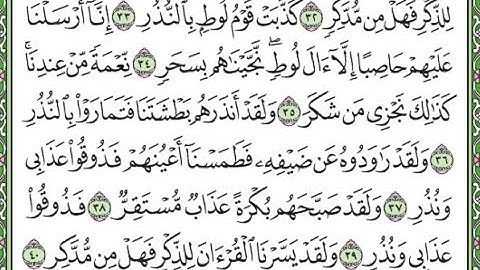 لِلذِّكْرِ فَهَلْ مِن مُّدَّكِرٍ ٣٢ كَذَّبَتْ قَوْمُ لُوطٍۭ بِٱلنُّذُرِ ٣٣ إِنَّآ أَرْسَلْنَا
عَلَيْهِمْ حَاصِبًا إِلَّآ ءَالَ لُوطٍ ۖ نَّجَّيْنَٰهُم بِسَحَرٍ ٣٤ نِّعْمَةً مِّنْ عِندِنَا ۚ
كَذَٰلِكَ نَجْزِى مَن شَكَرَ ٣٥ وَلَقَدْ أَنذَرَهُم بَطْشَتَنَا فَتَمَارَوْا۟ بِٱلنُّذُرِ
٣٦ وَلَقَدْ رَٰوَدُوهُ عَن ضَيْفِهِۦ فَطَمَسْنَآ أَعْيُنَهُمْ فَذُوقُوا۟ عَذَابِى
وَنُذُرِ ٣٧ وَلَقَدْ صَبَّحَهُم بُكْرَةً عَذَابٌ مُّسْتَقِرٌّ ٣٨ فَذُوقُوا۟
عَذَابِى وَنُذُرِ ٣٩ وَلَقَدْ يَسَّرْنَا ٱلْقُرْءَانَ لِلذِّكْرِ فَهَلْ مِن مُّدَّكِرٍ ٤٠